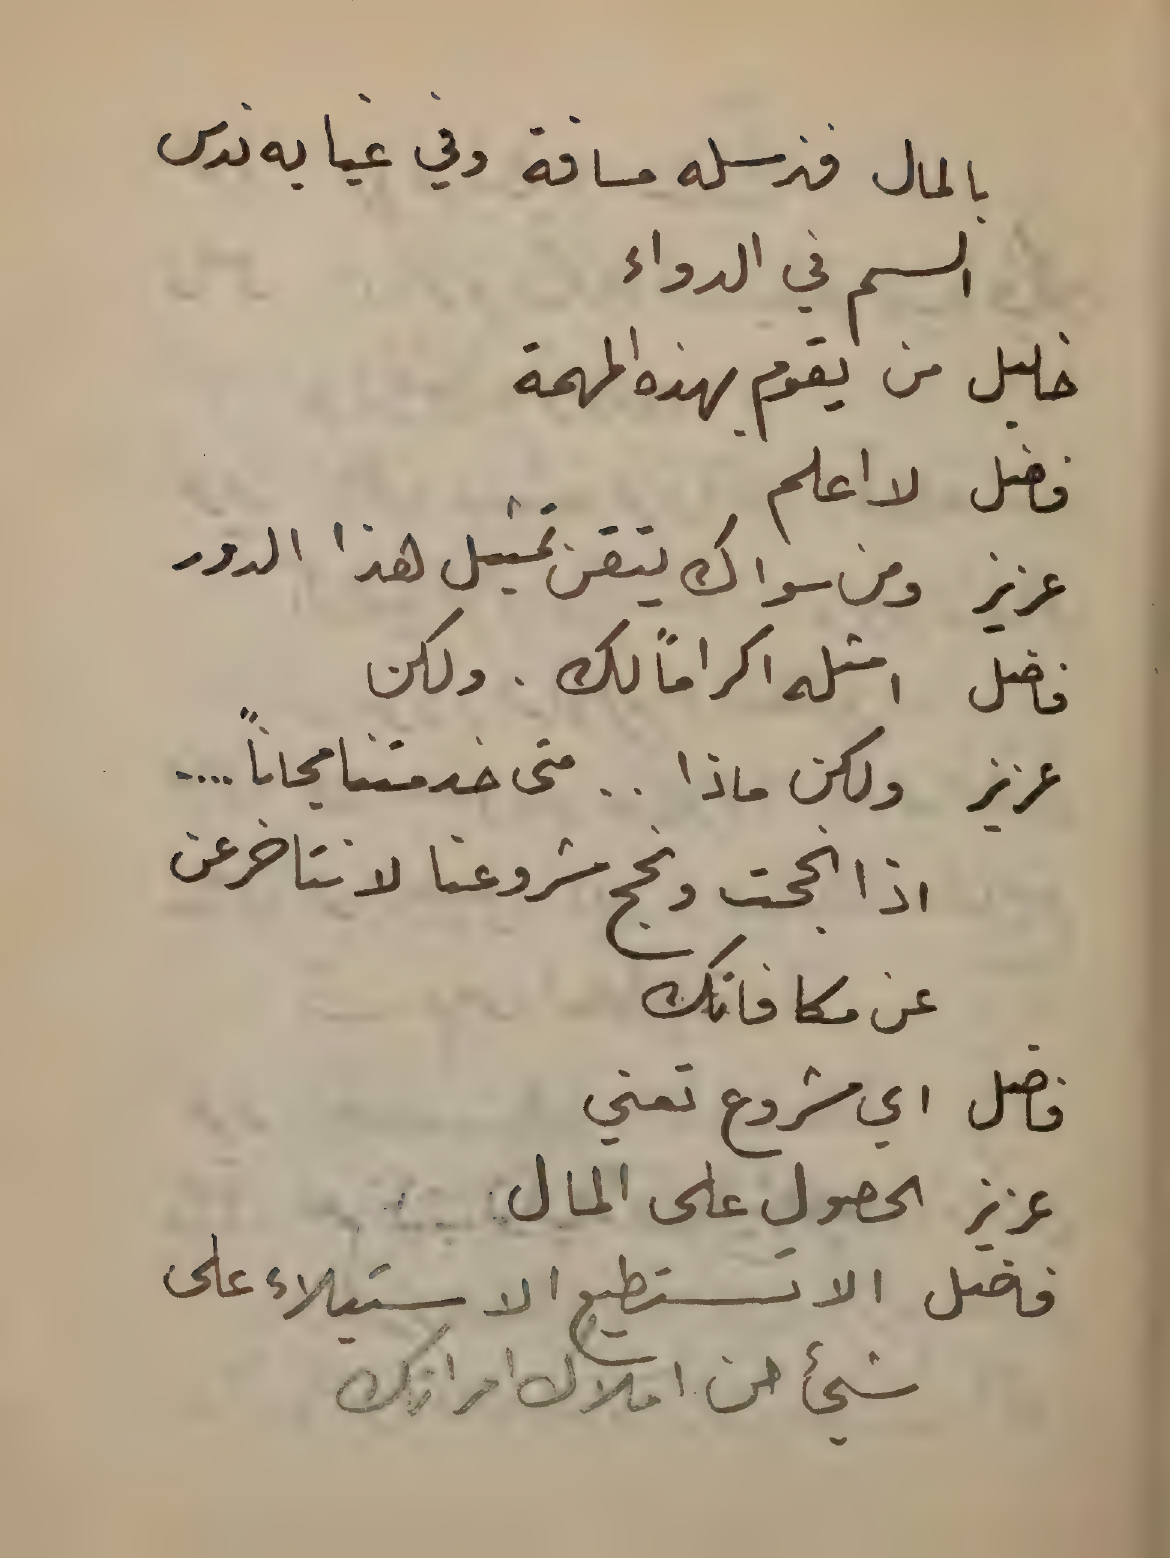 بالمال فنرسله مسافة وفي غيابه ندس
السم في الدواء
خليل من يقوم بهذه المهمة
فاضل لا اعلم
عزيز ومن سواك يتقن تمثيل هذا الدور
فاضل امثله اكراماً لك . ولكن
عزيز ولكن ماذا .. متى خدمتنا مجاناً ....
اذا نجحت ونجح مشروعنا لا نتاخر عن
عن مكافاتك
فاضل اي مشروع تعني
عزيز الحصول على المال
فاضل الا تستطيع الاستيلاء على
شيئ من املاك امراتك